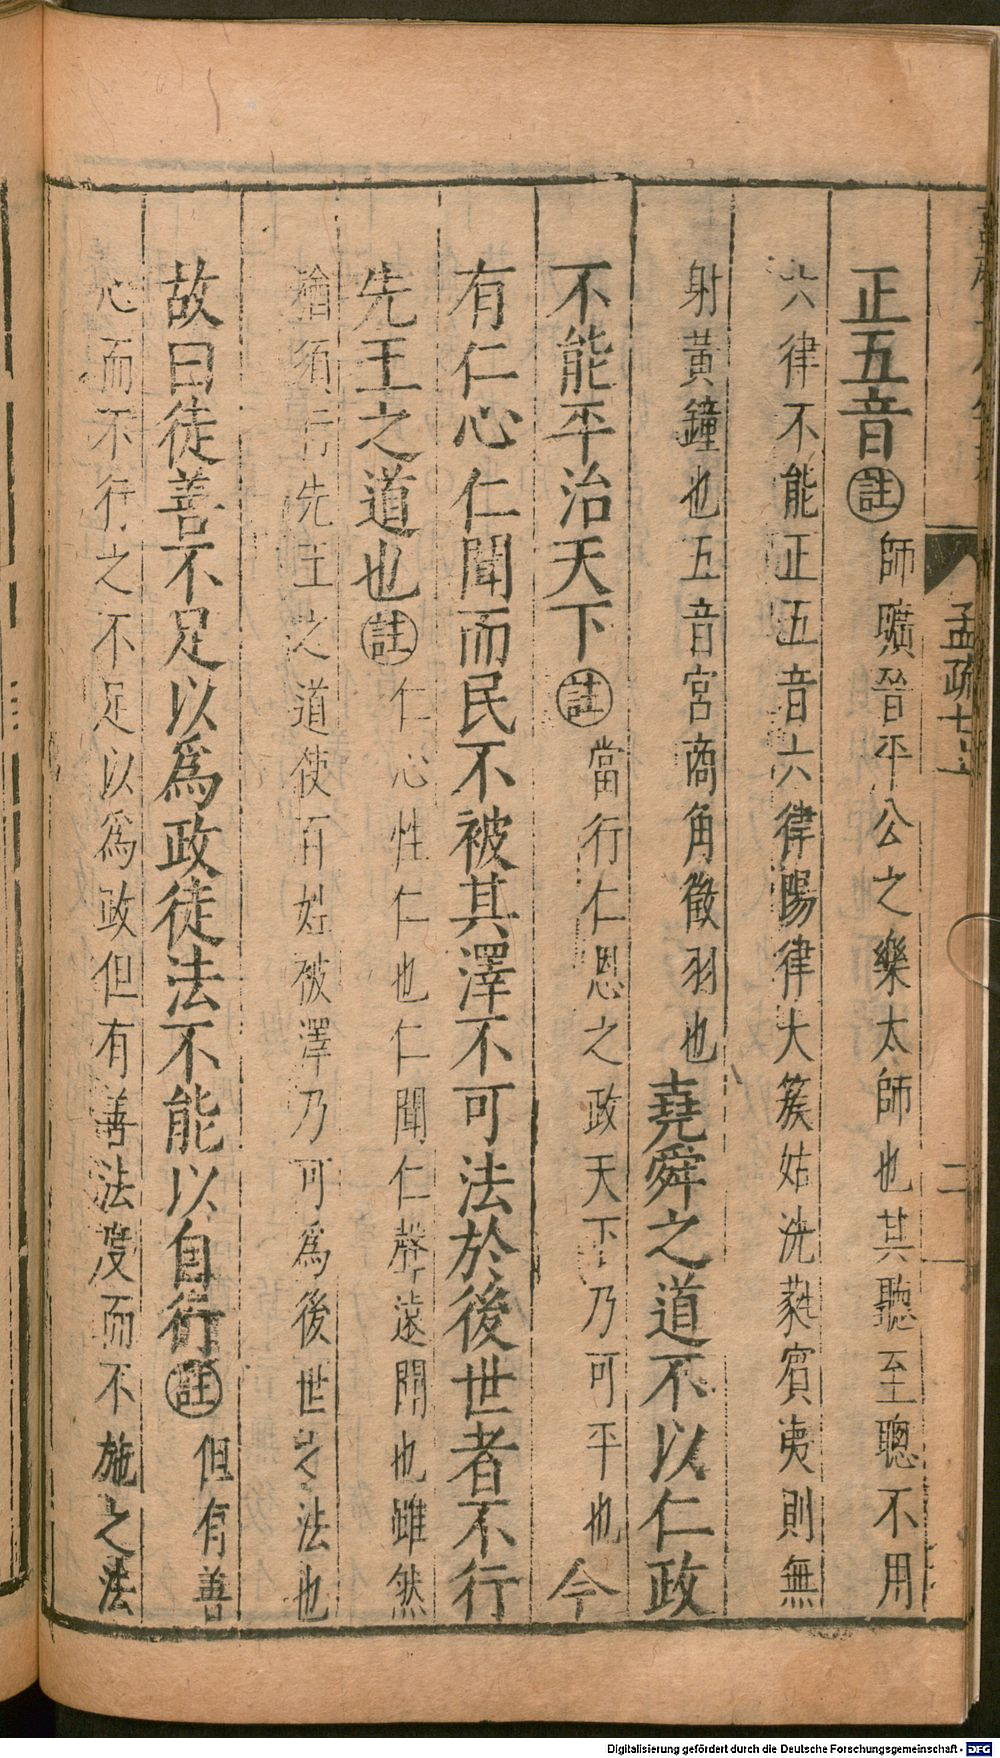 孟疏七上
二
正五音註師曠晉平公之樂太師也其聽至聰不用
六律不能正五音六律陽律大簇姑洗蕤賓夷則無
射黃鐘也五音宮商角徵羽也堯舜之道不以仁政
不能平治天下註當行仁恩之政天下乃可平也今
有仁心仁聞而民不被其澤不可法於後世者不行
先王之道也註仁心性仁也仁聞仁聲遠聞也雖然
猶須行先王之道使百姓被澤乃可爲後世之法也
故曰徒善不足以爲政徒法不能以自行註但有善
心而不行之不足以爲政但有善法度而不施之法
Digitalisierung gefördert durch die Deutsche Forschungsgemeinschaft - DFG